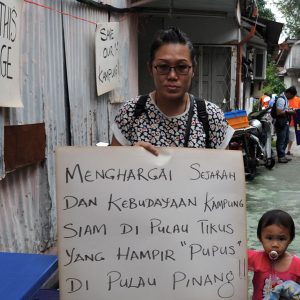 THIS
GE
SAVE
OUR
KAMPUNG
MENGHARGAI SEJARAH
DAN KEBUDAYAAN KAMPUNG
SIAM DI PULAU TIKUS
YANG HAMPIR "PUPUS"
DI PULAU PINANG!!